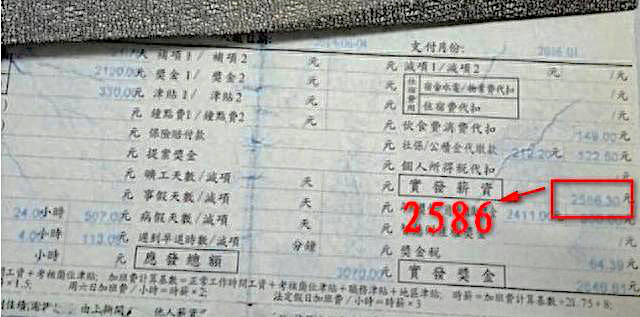 支付月份: 2016 01
天 補項1/補項2 元 元 減項1/減項2 元 /元
2120.00元 獎金1/獎金2 元 住宿費用 宿舍水電/物業費代扣 /元
330.00元 津貼1/津貼2 元 住宿費代扣 /元
元 鐘點費1/鐘點費2 元 元 伙食費消費代扣 149.00元
元 保險賠付款 元 社保/公積金代繳款 212.20元 122.60元
元 提案獎金 元 個人所得稅代扣 元
元 曠工天數/減項 天 元 實發薪資 2586.30元
元 事假天數/減項 天 2586 2411.00
24.00小時 507.0元 病假天數/減項 天
4.0小時 113.00元 遲到早退時數/減項 分鐘 元 獎金稅 64.39元
小時 元 應發總額 3070.00元 實發獎金
加班費計算基數=正常工作時間工資+考核崗位津貼+職務津貼+地區津貼; 時薪=加班費計算基數÷21.75÷8;
×1.5; 周六日加班費/小時=時薪×2; 法定假日加班費/小時=時薪×3